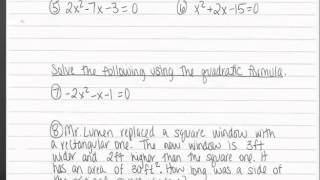 ⑤ 2x²-7x-3=0 ⑥ x²+2x-15=0
Solve the following using the quadratic formula.
⑦ -2x²-x-1=0
⑧ Mr. Lumen replaced a square window with
a rectangular one. The new window is 3ft
wider and 2ft higher than the square one. It
has an area of 30ft². How long was a side of
the